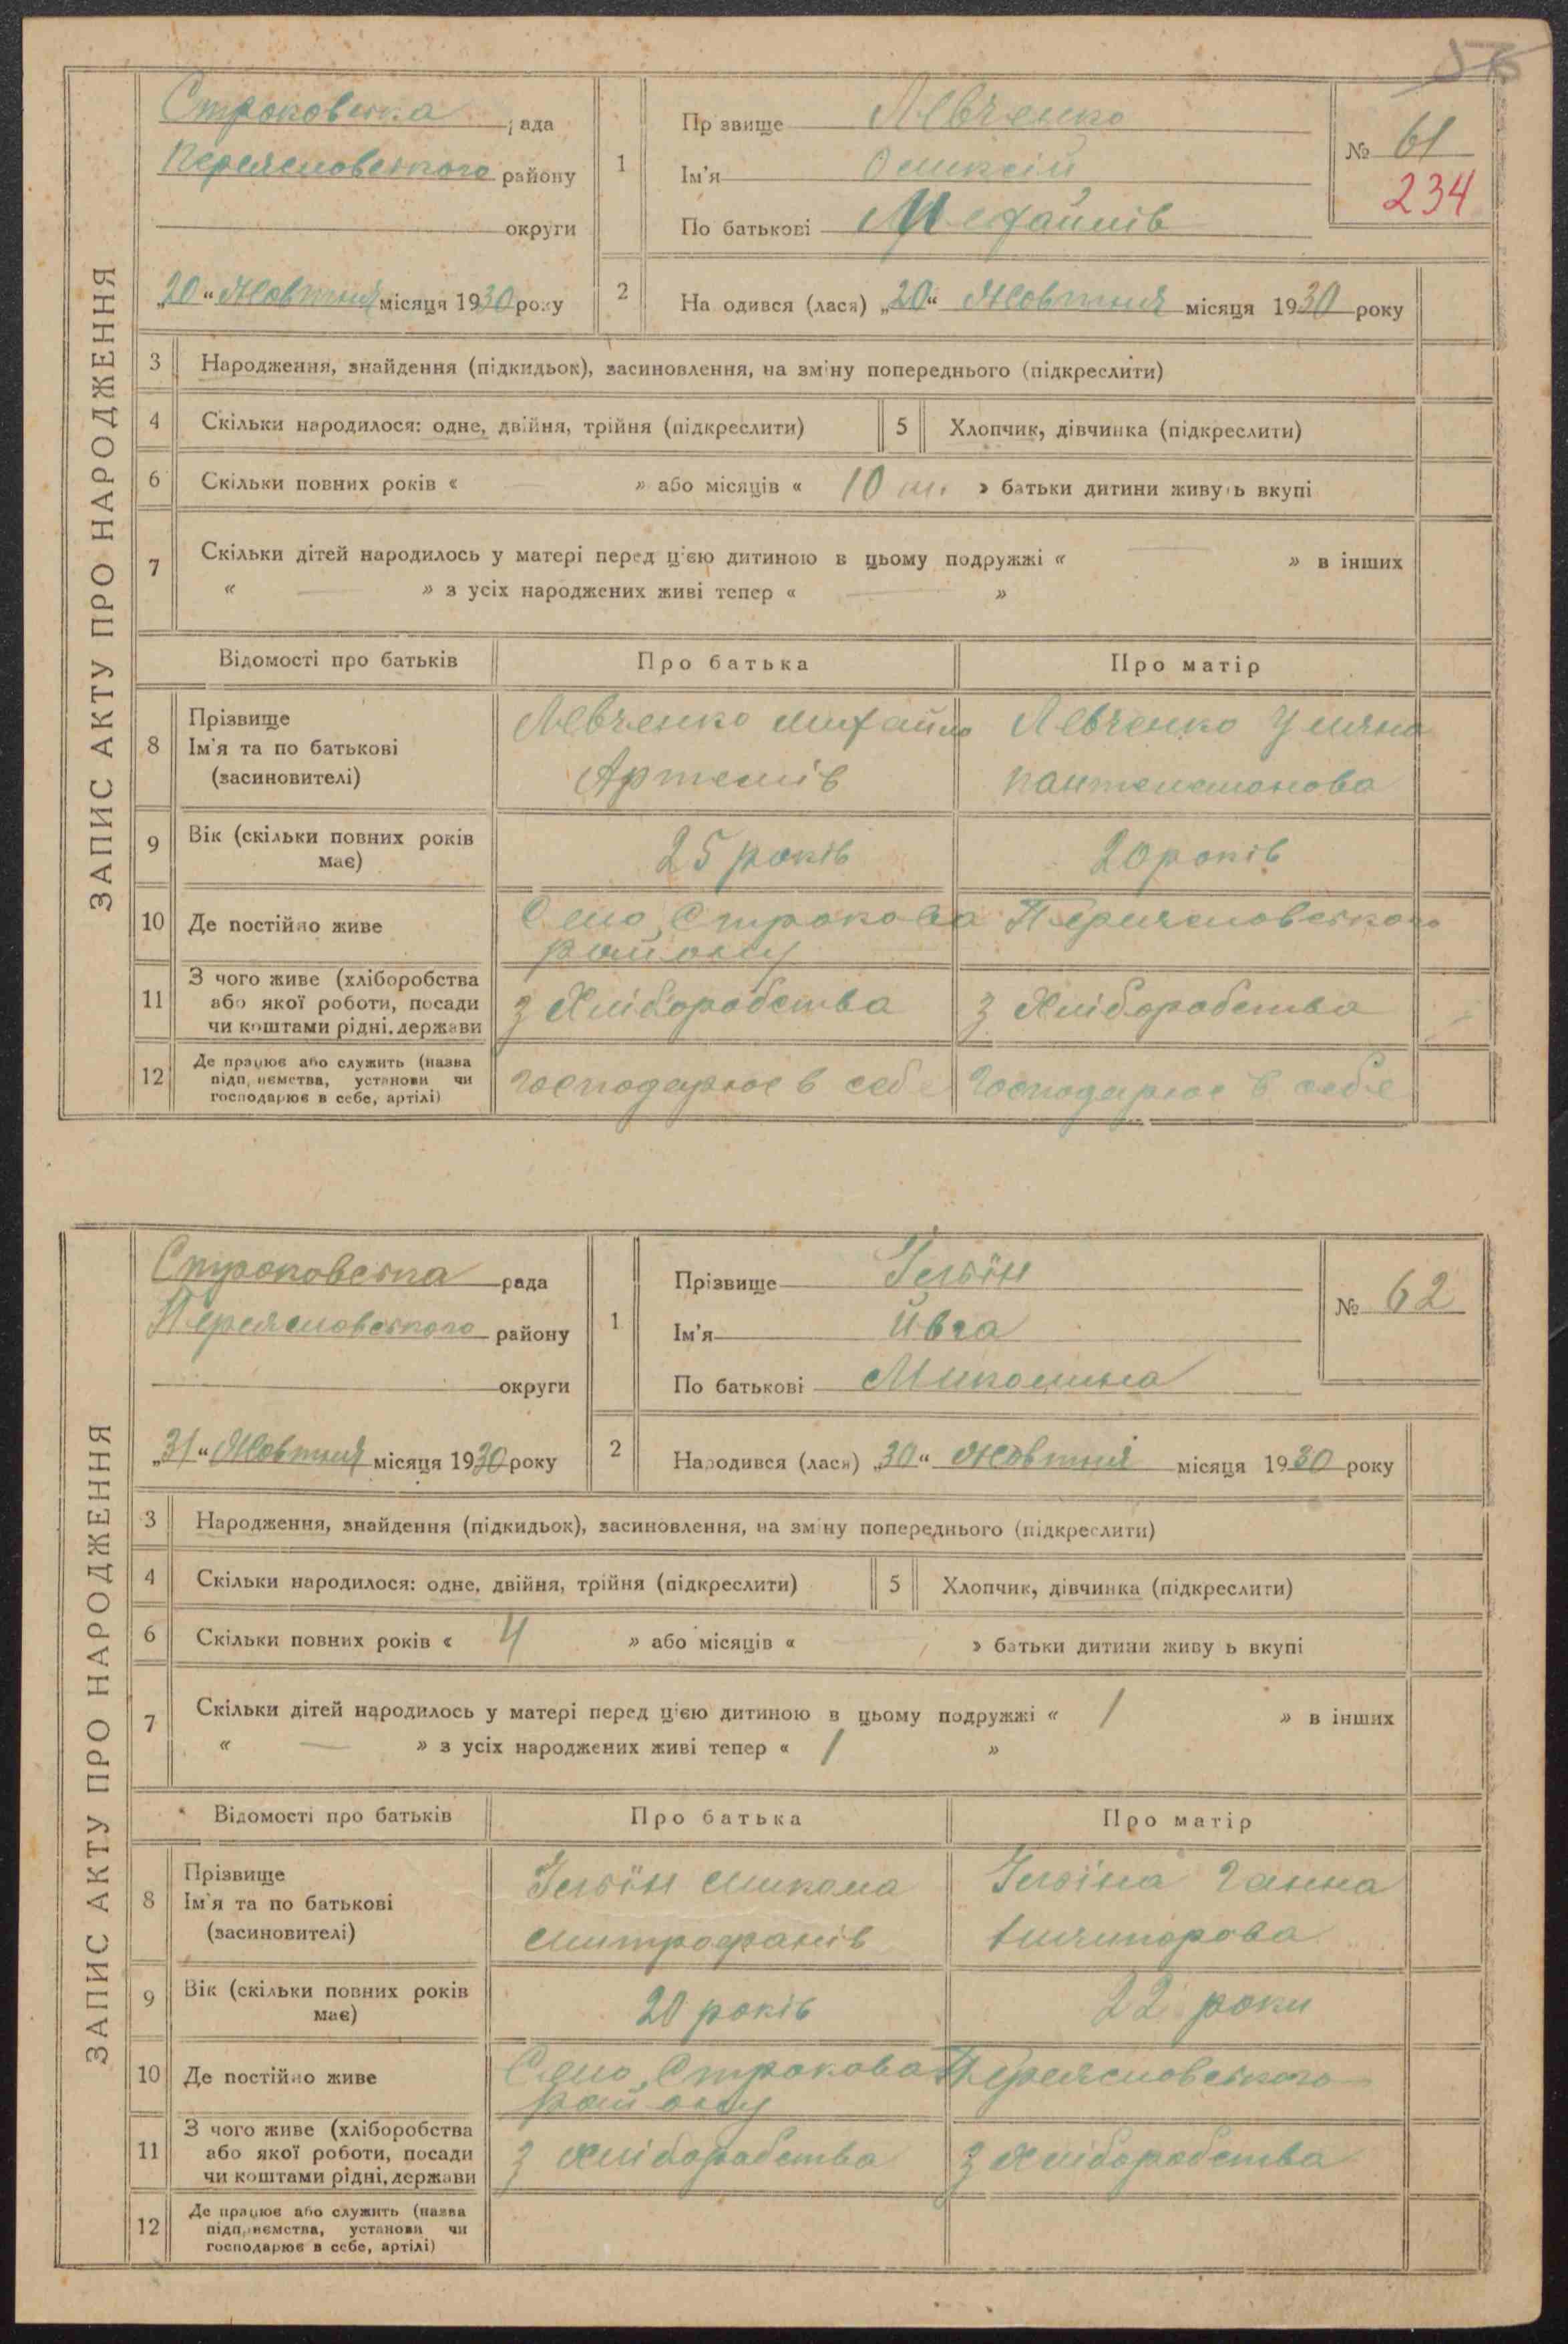 ЗАПИС АКТУ ПРО НАРОДЖЕННЯ
Строковська рада
Переяславського району
округи
„20“ Жовтня місяця 1930 року
1
Прізвище Левченко
Ім'я Олексій
По батькові Михайлів
№ 61
234
2
Народився (лася) „20“ Жовтня місяця 1930 року
3 Народження, знайдення (підкидьок), засиновлення, на зміну попереднього (підкреслити)
4 Скільки народилося: одне, двійня, трійня (підкреслити) 5 Хлопчик, дівчинка (підкреслити)
6 Скільки повних років « — » або місяців « 10 м. » батьки дитини живуть вкупі
7 Скільки дітей народилось у матері перед цією дитиною в цьому подружжі « — » в інших
« — » з усіх народжених живі тепер « — »
Відомості про батьків Про батька Про матір
8 Прізвище Ім'я та по батькові (засиновителі)
Левченко Михайло Левченко Уляна
Артемів Пантелемонова
9 Вік (скільки повних років має) 25 років 20 років
10 Де постійно живе Село Строкова Переяславського
району
11 З чого живе (хліборобства або якої роботи, посади чи коштами рідні, держави
З Хліборобства З Хліборобства
12 Де працює або служить (назва підприємства, установи чи господарює в себе, артілі)
господарює в себе господарює в себе
ЗАПИС АКТУ ПРО НАРОДЖЕННЯ
Строковська рада
Переяславського району
округи
„31“ Жовтня місяця 1930 року
1
Прізвище Ільїн
Ім'я Ивга
По батькові Миколина
№ 62
2
Народився (лася) „30“ Жовтня місяця 1930 року
3 Народження, знайдення (підкидьок), засиновлення, на зміну попереднього (підкреслити)
4 Скільки народилося: одне, двійня, трійня (підкреслити) 5 Хлопчик, дівчинка (підкреслити)
6 Скільки повних років « 4 » або місяців « — » батьки дитини живуть вкупі
7 Скільки дітей народилось у матері перед цією дитиною в цьому подружжі « 1 » в інших
« — » з усіх народжених живі тепер « 1 »
Відомості про батьків Про батька Про матір
8 Прізвище Ім'я та по батькові (засиновителі)
Ільїн Микола Ільїна Ганна
Митрофанів
9 Вік (скільки повних років має) 20 років 22 роки
10 Де постійно живе Село Строкова Переяславського
району
11 З чого живе (хліборобства або якої роботи, посади чи коштами рідні, держави
З Хліборобства З Хліборобства
12 Де працює або служить (назва підприємства, установи чи господарює в себе, артілі)